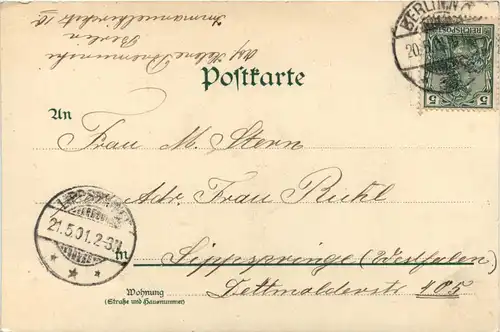 Postkarte
An
Frau M. Stern
Adr. Frau Rickl
in Lippspringe (Westfalen)
Wohnung
(Straße und Hausnummer)
Dettmolderstr 405
Berlin
Immanuelkirchstr. 10
BERLIN N.
20.5.01
REICHSPOST
5 5
LIPPSPRINGE
21.5.01. 2-3N